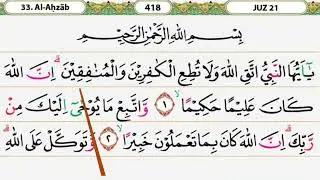 33. Al-Aḥzāb 418 JUZ 21
بِسْمِ اللّٰهِ الرَّحْمٰنِ الرَّحِيْمِ
يٰٓاَيُّهَا النَّبِيُّ اتَّقِ اللّٰهَ وَلَا تُطِعِ الْكٰفِرِيْنَ وَالْمُنٰفِقِيْنَ ۗ اِنَّ اللّٰهَ
كَانَ عَلِيْمًا حَكِيْمًا ۙ ١ وَّاتَّبِعْ مَا يُوْحٰىٓ اِلَيْكَ مِنْ
رَّبِّكَ ۗ اِنَّ اللّٰهَ كَانَ بِمَا تَعْمَلُوْنَ خَبِيْرًا ۙ ٢ وَّتَوَكَّلْ عَلَى اللّٰهِ ۗ